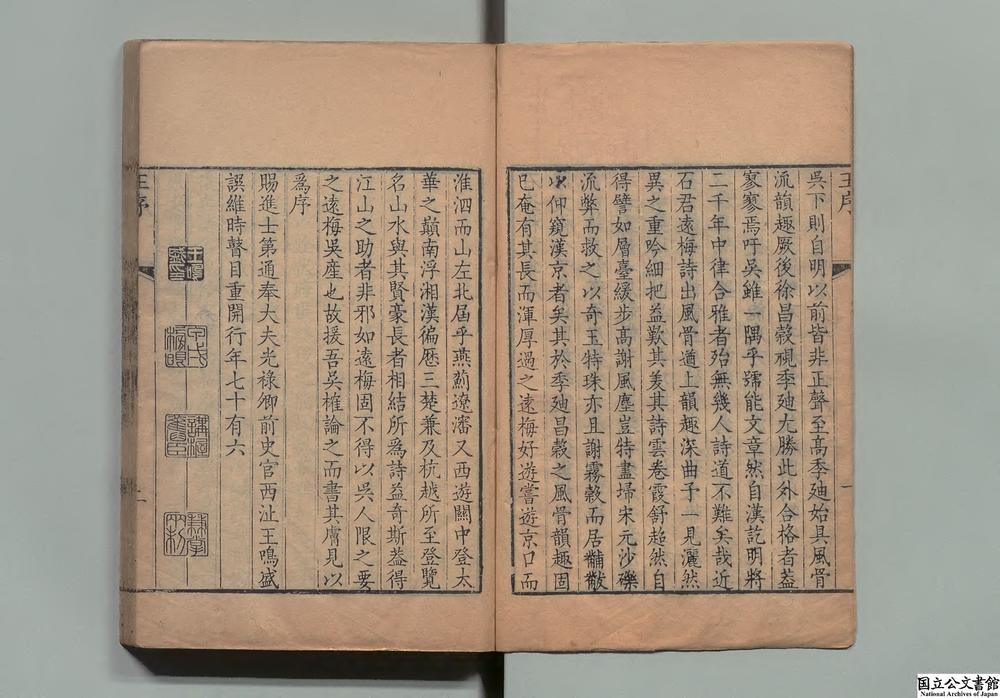 王序
一
吳下則自明以前皆非正聲至髙季廸始具風骨
流韻趣厥後徐昌榖視季廸尢勝此外合格者葢
寥寥焉吁吳雖一隅乎號能文章然自漢訖明將
二千年中律合雅者殆無幾人詩道不難矣哉近
石君遠梅詩出風骨道上韻趣深曲子一見灑然
異之重吟細把益歎其羙其詩雲卷霞舒超然自
得譬如層臺緩步高謝風塵豈特盡埽宋元沙礫
流弊而救之以奇玉特珠亦且謝霧縠而居黼黻
仰窺漢京者矣其於季廸昌榖之風骨韻趣固
已奄有其長而渾厚過之遠梅好遊嘗遊京口而
淮泗而山左北屆乎燕薊遼瀋又西遊關中登太
華之巔南浮湘漢徧歴三楚兼及杭越所至登覽
名山水與其賢豪長者相結所爲詩益奇斯葢得
江山之助者非邪如遠梅固不得以吳人限之要
之遠梅吳產也故援吾吳榷論之而書其膚見以
爲序
賜進士第通奉大夫光祿卿前史官西沚王鳴盛
譔維時瞽目重開行年七十有六
王序
二
国立公文書館
National Archives of Japan